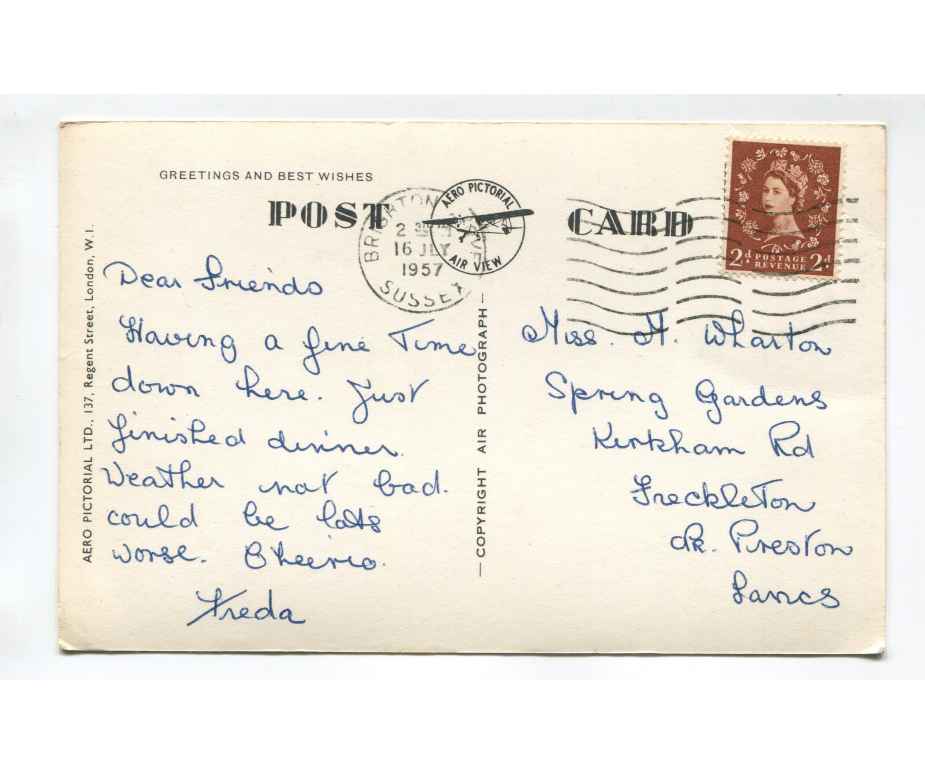 GREETINGS AND BEST WISHES
POST CARD
AERO PICTORIAL
AIR VIEW
BRIGHTON
16 JLY
1957
SUSSEX
2D POSTAGE REVENUE 2D
AERO PICTORIAL LTD., 137, Regent Street, London, W.I.
— COPYRIGHT AIR PHOTOGRAPH —
Dear Friends
Having a fine Time
down here. Just
finished dinner.
Weather not bad.
could be lots
worse. Cheerio.
Freda
Miss. M. Wharton
Spring Gardens
Kirkham Rd
Freckleton
Nr. Preston
Lancs